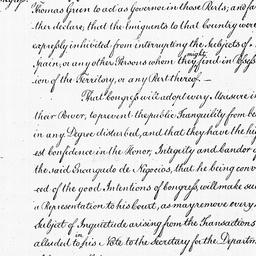 Thomas Green to act as Governor in those Parts; and fa
ther declare, that the Emigrants to that Country were
expressly inhibited from interrupting the Subjects of
Spain, or any other Persons whom they might find in Posses
ion of the Territory, or any Part thereof —
That Congress will adopt every Measure in
their Power, to prevent the public Tranquility from be
in any Degree disturbed, and that they have the hig
est Confidence in the Honor, Integrity and Candor of
the said Encargado de Negocios, that he being conv
ced of the good Intentions of Congress, will make suc
a Representation to his Court, as may remove every
Subject of Inquietude arising from the Transactions
alluded to in his Note to the Secretary for the Departm